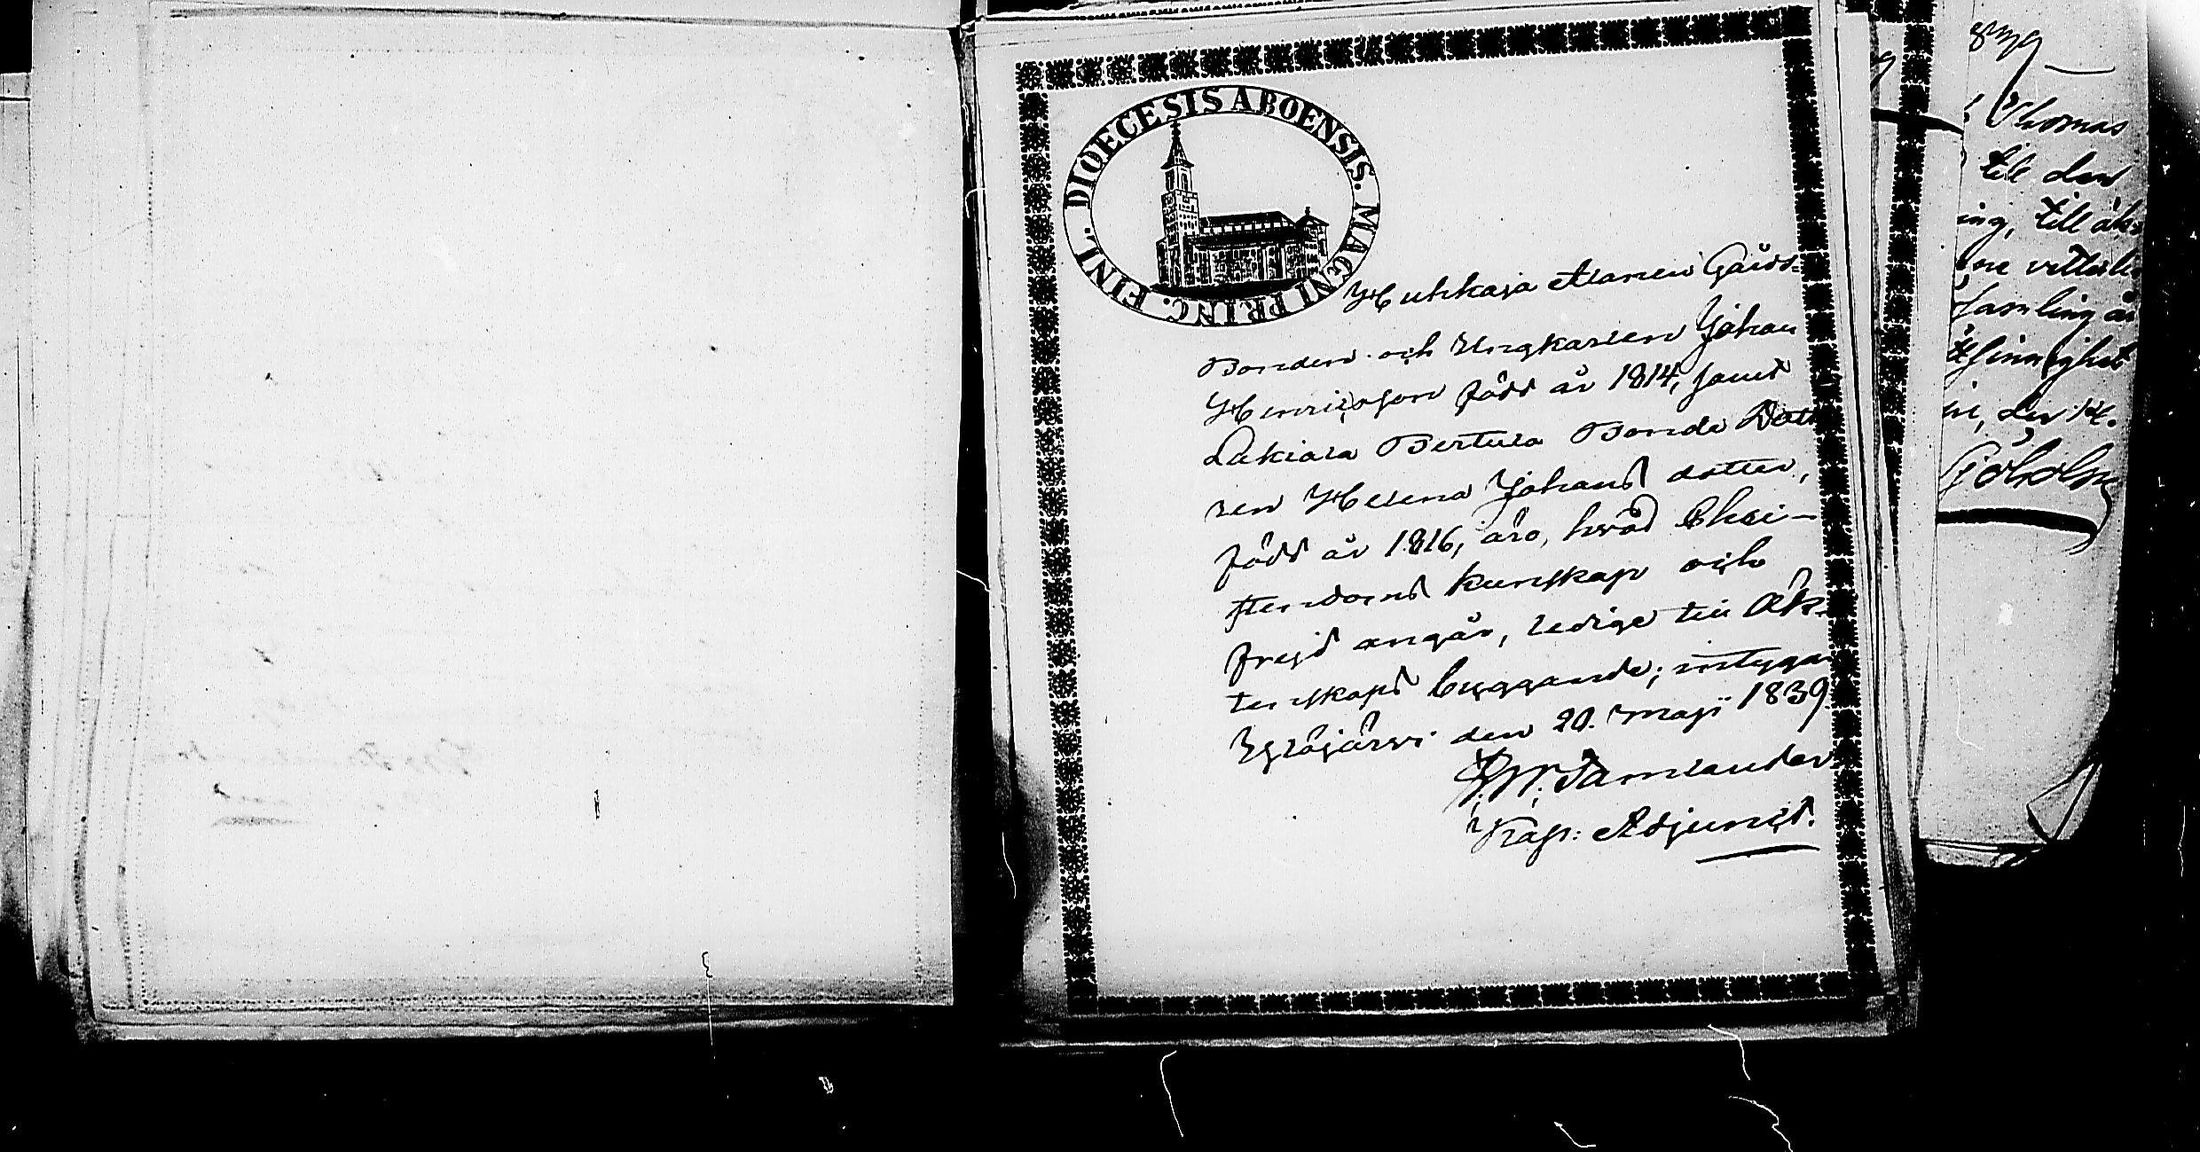 DIOECESIS ABOENSIS. MAGNI PRINC. FINL.
Huhkaja Alanen Gårds-
Bonden och Ungkarlen Johan
Henricsson född år 1814, samt
Lakiala Bertula Bonde Dott
ren Helena Johans dotter,
född år 1816, äro, hvad Chri-
stendoms kunskap och
frejd angår, ledige till Äk-
tenskaps byggande; intygar
Ylöjärvi den 20. Maji 1839.
Tamlander
Kap: Adjunct.
Thomas
till den
ing, till äk
samling är
den 14.